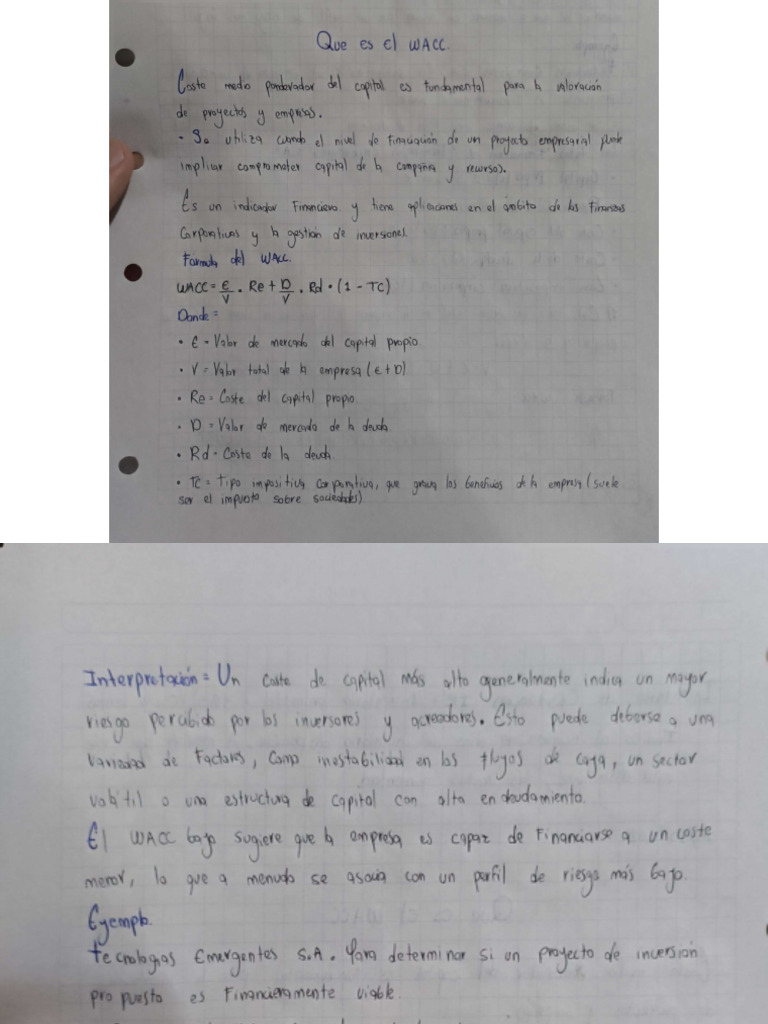 Que es el WACC.
Coste medio ponderador del capital es fundamental para la valoración
de proyectos y empresas.
• Se utiliza cuando el nivel de financiación de un proyecto empresarial puede
implicar comprometer capital de la compañia y recursos.
Es un indicador Financiero y tiene aplicaciones en el ámbito de las Finanzas
Corporativas y la gestión de inversiones.
Formula del WACC.
WACC = E/V • Re + D/V • Rd • (1 - TC)
Donde =
• E = Valor de mercado del capital propio.
• V = Valor total de la empresa (E + D)
• Re = Coste del capital propio.
• D = Valor de mercado de la deuda.
• Rd = Coste de la deuda.
• TC = Tipo impositiva Corporativa, que grava los beneficios de la empresa (suele
ser el impuesto sobre sociedades).
Interpretación = Un coste de capital más alto generalmente indica un mayor
riesgo percibido por los inversores y acreedores. Esto puede deberse a una
variedad de Factores, como inestabilidad en los flujos de caja, un sector
volátil o una estructura de capital con alta endeudamiento.
El WACC bajo sugiere que la empresa es capaz de Financiarse a un coste
menor, lo que a menudo se asocia con un perfil de riesgo más bajo.
Ejemplo.
Tecnologias Emergentes S.A. Para determinar si un proyecto de inversión
propuesto es Financieramente viable.